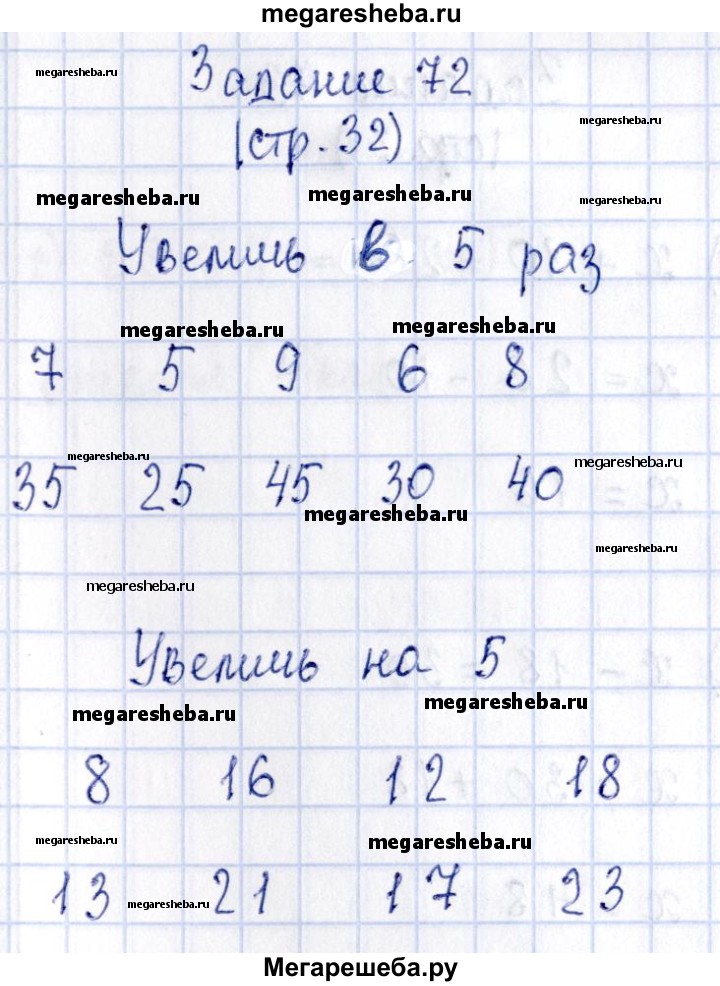 megaresheba.ru
Задание 72
megaresheba.ru
megaresheba.ru
(стр. 32)
megaresheba.ru
megaresheba.ru
megaresheba.ru
Увеличь в 5 раз
megaresheba.ru
megaresheba.ru
7 5 9 6 8
megaresheba.ru
megaresheba.ru
35 25 45 30 40
megaresheba.ru
megaresheba.ru
megaresheba.ru
Увеличь на 5
megaresheba.ru
megaresheba.ru
8 16 12 18
megaresheba.ru
megaresheba.ru
13 21 17 23
megaresheba.ru
Мегарешеба.ру